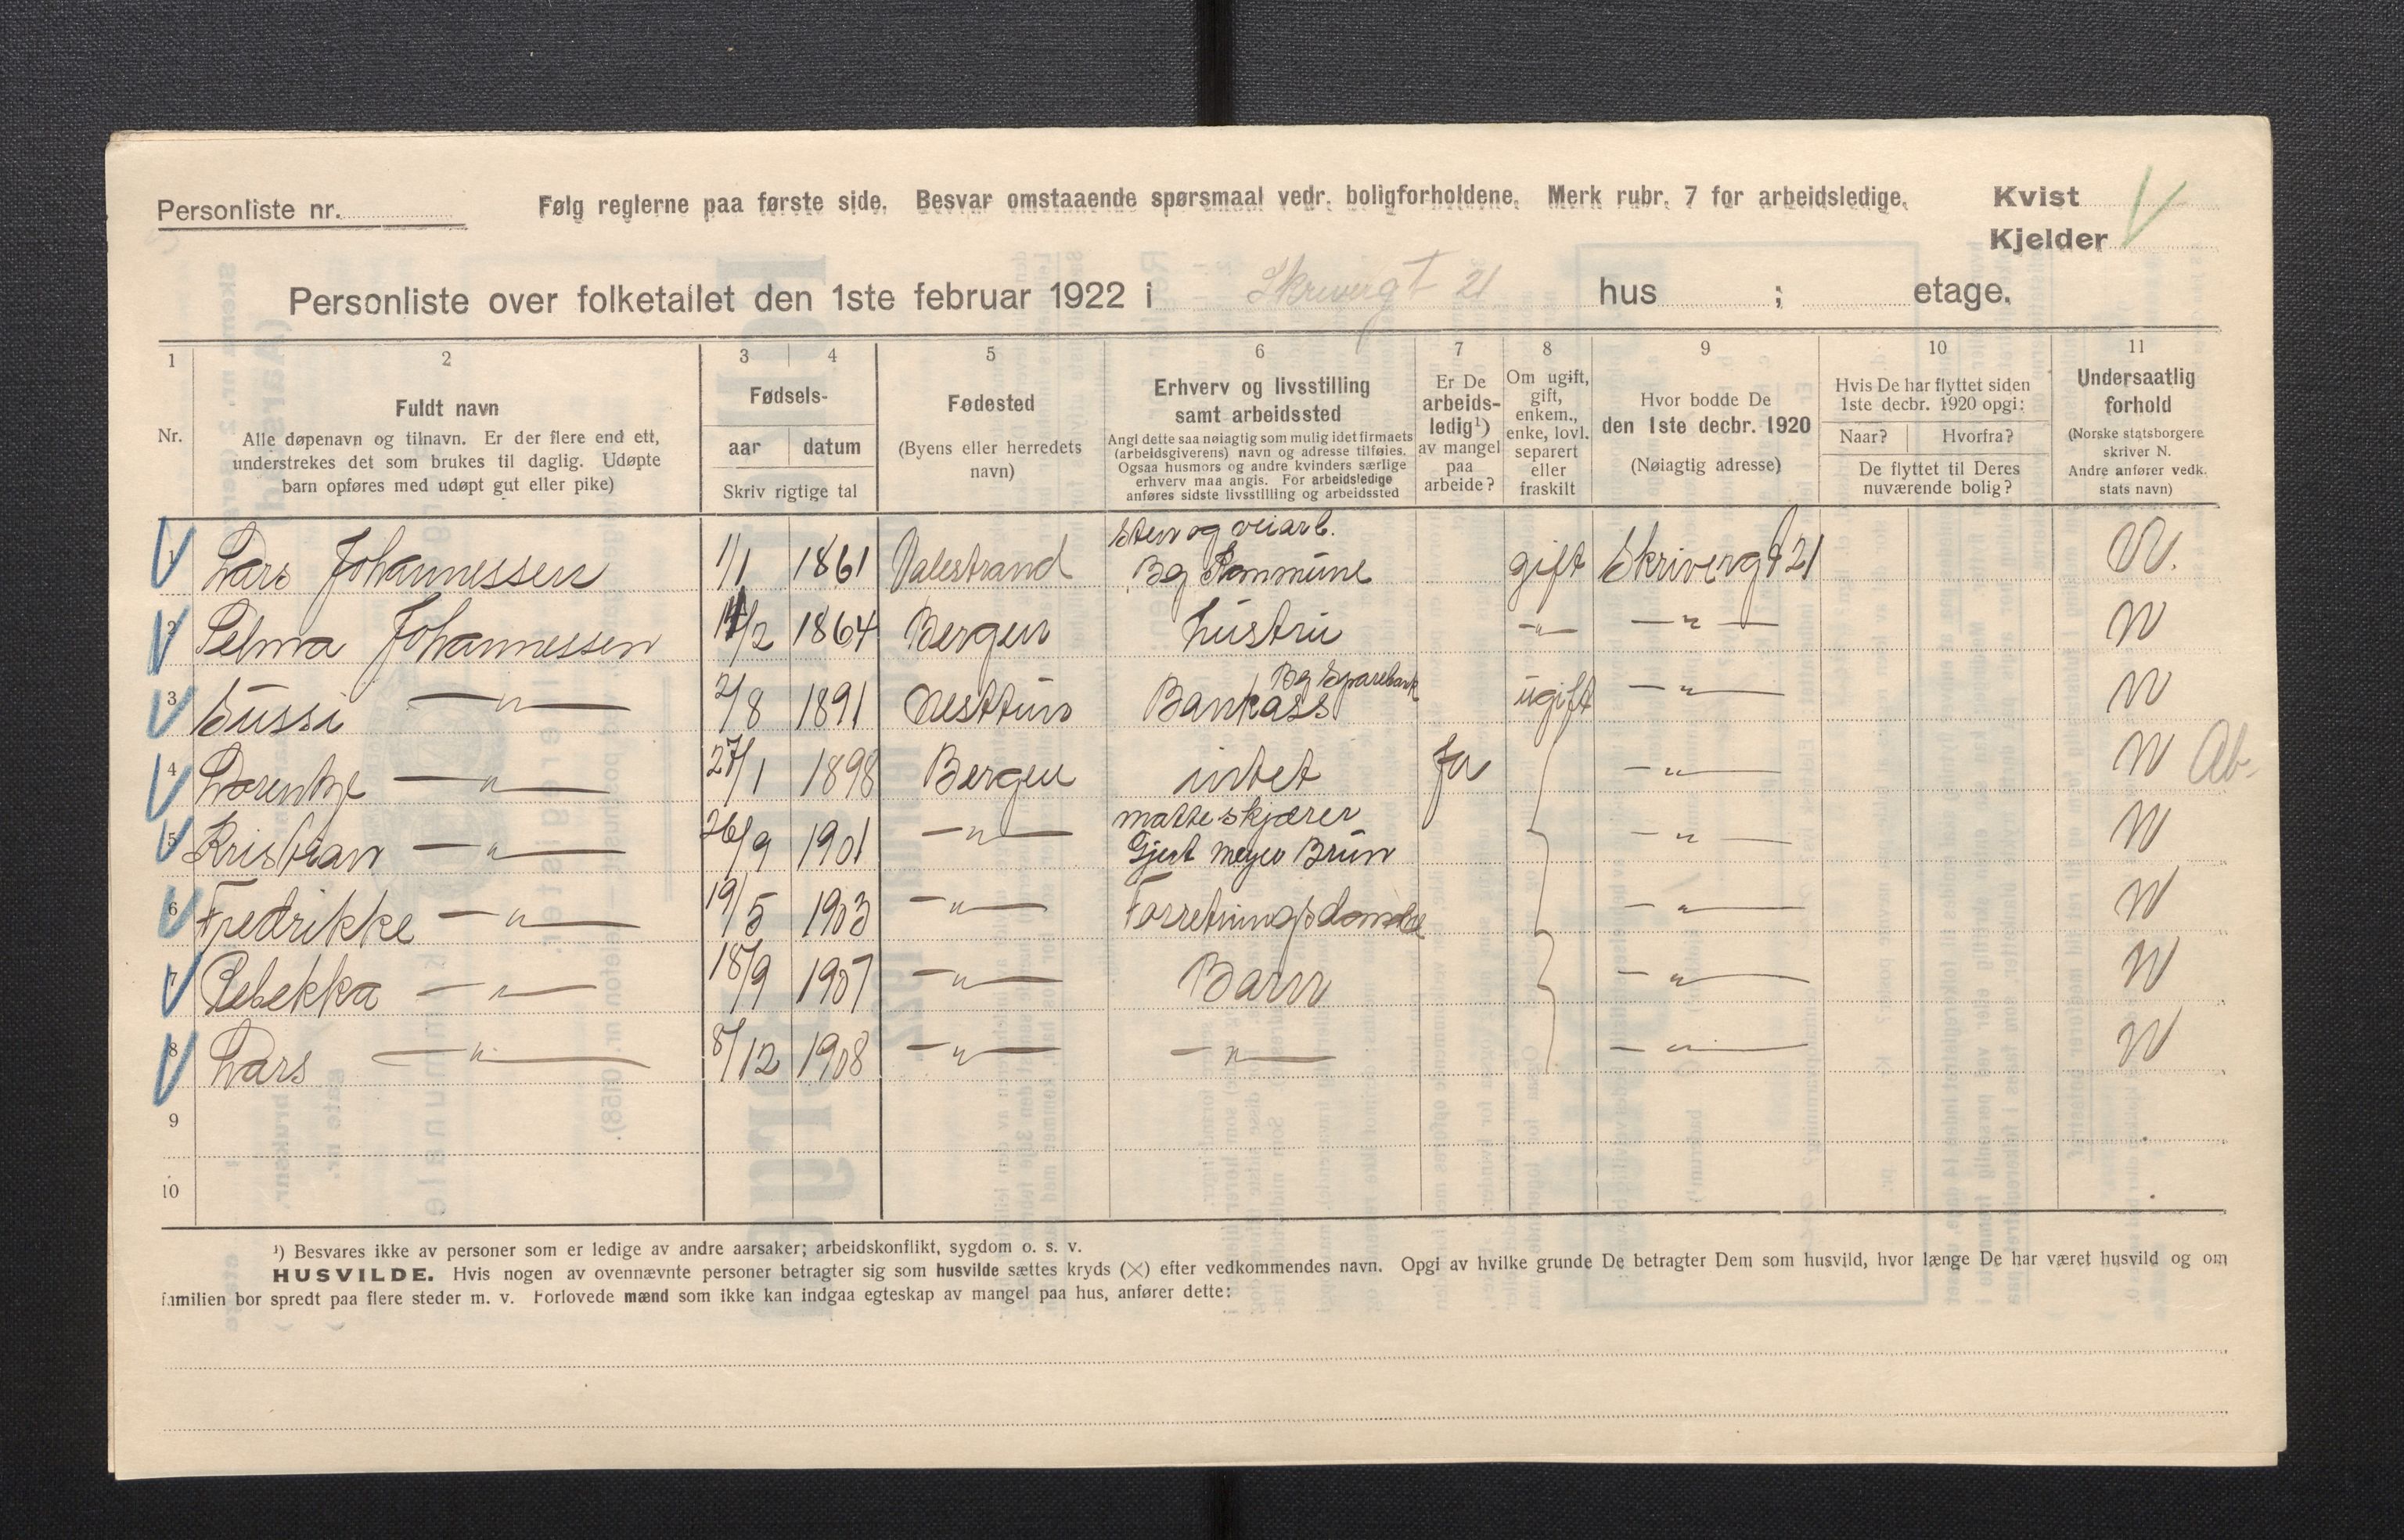 Personliste nr.
Følg reglerne paa første side. Besvar omstaaende spørsmaal vedr. boligforholdene. Merk rubr. 7 for arbeidsledige.
Kvist
Kjelder
Personliste over folketallet den 1ste februar 1922 i Skrivergt 21 hus ; etage.
1 2 3 4 5 6 7 8 9 10 11
Nr.
Fuldt navn
Alle døpenavn og tilnavn. Er der flere end ett,
understrekes det som brukes til daglig. Udøpte
barn opføres med udøpt gut eller pike)
Fødsels-
aar datum
Skriv rigtige tal
Fødested
(Byens eller herredets
navn)
Erhverv og livsstilling
samt arbeidssted
Angi dette saa nøiagtig som mulig idet firmaets
(arbeidsgiverens) navn og adresse tilføies.
Ogsaa husmors og andre kvinders særlige
erhverv maa angis. For arbeidsledige
anføres sidste livsstilling og arbeidssted
Er De
arbeids-
ledig¹)
av mangel
paa
arbeide?
Om ugift,
gift,
enkem.,
enke, lovl.
separert
eller
fraskilt
Hvor bodde De
den 1ste decbr. 1920
(Nøiagtig adresse)
Hvis De har flyttet siden
1ste decbr. 1920 opgi:
Naar? Hvorfra?
De flyttet til Deres
nuværende bolig?
Undersaatlig
forhold
(Norske statsborgere
skriver N.
Andre anfører vedk.
stats navn)
Sten og veiarb.
1 Lars Johannessen 1/1 1861 Valestrand Bg Kommune gift Skrivergt 21 N.
2 Selma Johannessen 14/2 1864 Bergen hustru -"- -"- N
Bg Sparebank
3 Sussi -"- 2/8 1891 Nesttun Bankass ugift -"- N
4 Lorentze -"- 27/1 1898 Bergen intet Ja -"- N Ab.
matteskjærer
5 Kristian -"- 26/9 1901 -"- Gjert Meyer Brun -"- N
6 Fredrikke -"- 19/5 1903 -"- Forretningsdame -"- N
7 Rebekka -"- 18/9 1907 -"- Barn -"- N
8 Lars -"- 8/12 1908 -"- -"- -"- N
9
10
¹) Besvares ikke av personer som er ledige av andre aarsaker; arbeidskonflikt, sygdom o. s. v.
HUSVILDE. Hvis nogen av ovennævnte personer betragter sig som husvild sættes kryds (×) efter vedkommendes navn. Opgi av hvilke grunde De betragter Dem som husvild, hvor længe De har været husvild og om
familien bor spredt paa flere steder m. v. Forlovede mænd som ikke kan indgaa egteskap av mangel paa hus, anfører dette: